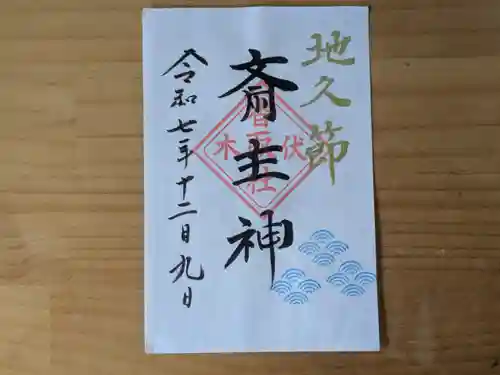 地久節
斎主神
伏木
香取社
令和七年十二月九日